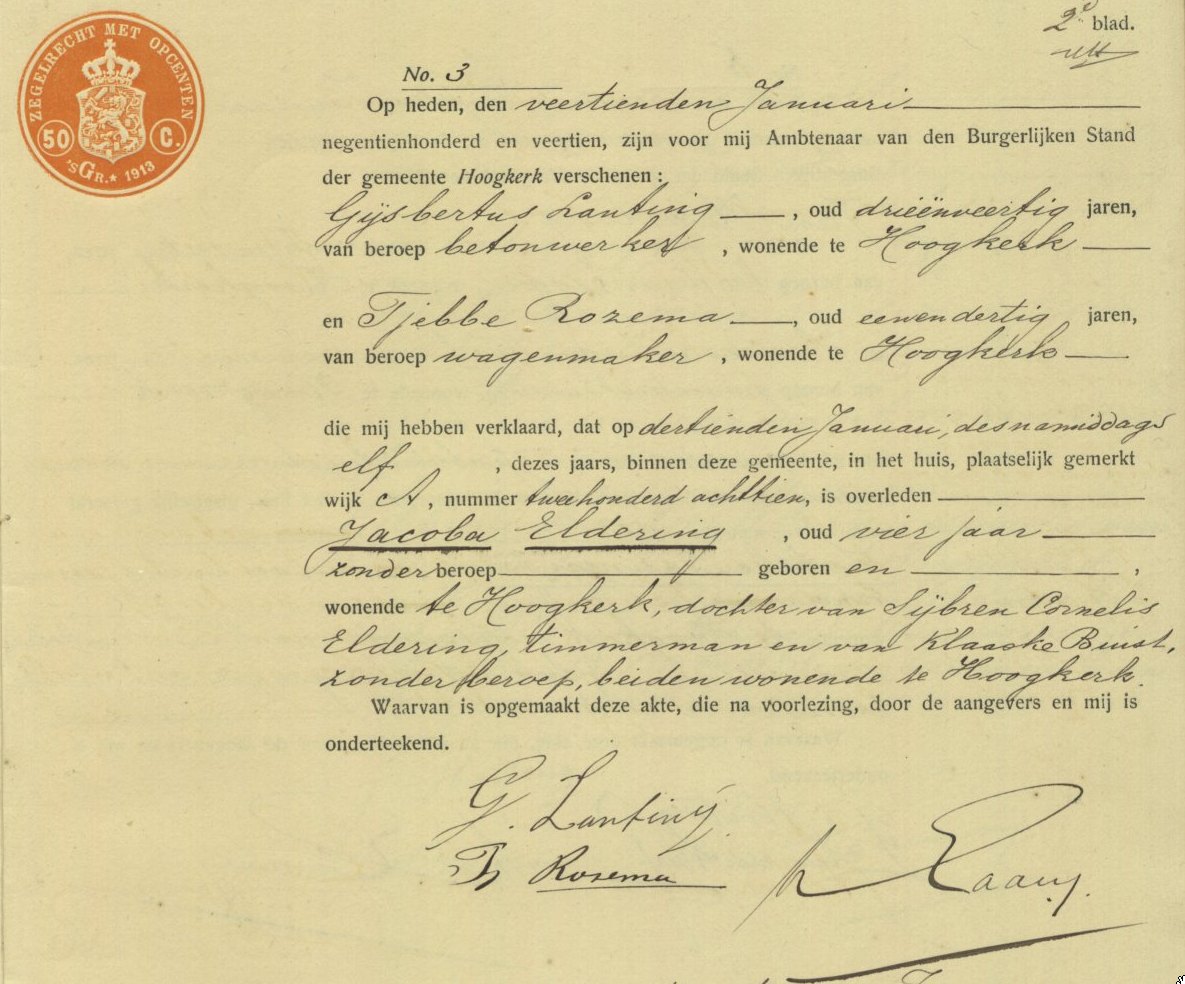 ZEGELRECHT MET OPCENTEN
50 C.
'sGR.* 1913
2e blad.
No. 3
Op heden, den veertienden Januari
negentienhonderd en veertien, zijn voor mij Ambtenaar van den Burgerlijken Stand
der gemeente Hoogkerk verschenen:
Gijsbertus Lanting, oud drieënveertig jaren,
van beroep betonwerker, wonende te Hoogkerk
en Tjebbe Rozema, oud eenendertig jaren,
van beroep wagenmaker, wonende te Hoogkerk
die mij hebben verklaard, dat op dertienden Januari, des namiddags
elf, dezes jaars, binnen deze gemeente, in het huis, plaatselijk gemerkt
wijk A, nummer tweehonderd achttien, is overleden
Jacoba Eldering, oud vier jaar
zonder beroep geboren en,
wonende te Hoogkerk, dochter van Sijbren Cornelis
Eldering, timmerman en van Klaaske Buist,
zonder beroep, beiden wonende te Hoogkerk.
Waarvan is opgemaakt deze akte, die na voorlezing, door de aangevers en mij is
onderteekend.
G. Lanting
Tj Rosema